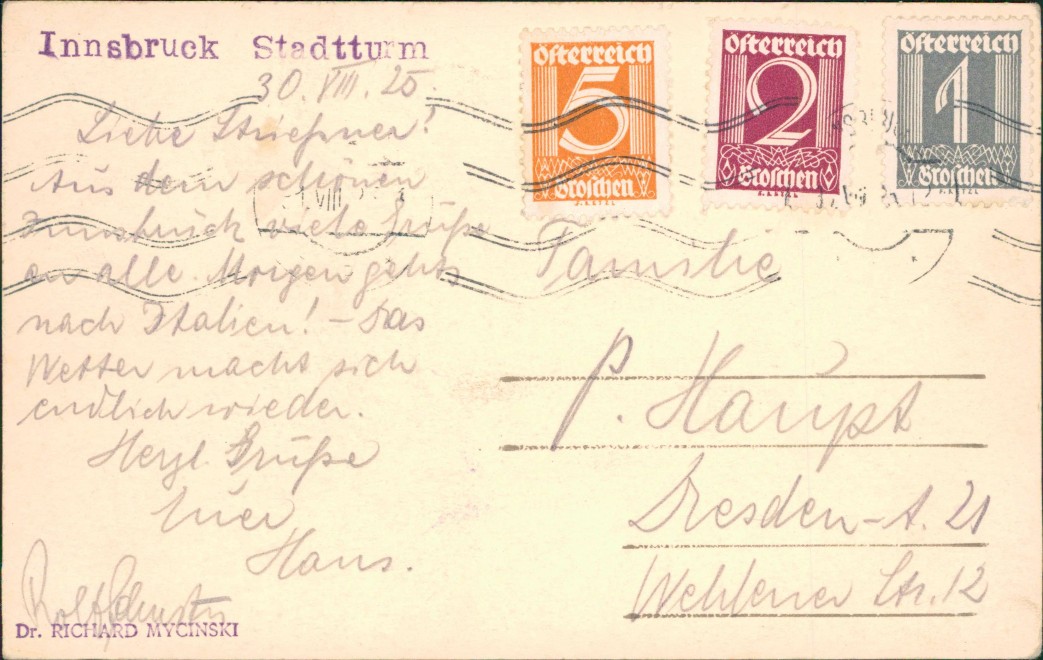 Innsbruck Stadtturm
30. VIII. 25.
Liebe Striesner!
Aus dem schönen
Innsbruck viele Grüße
an alle. Morgen gehts
nach Italien! – Das
Wetter macht sich
endlich wieder.
Herzl. Grüße
Euer
Hans.
Dr. RICHARD MYCINSKI
Österreich
5
Groschen
Österreich
2
Groschen
Österreich
1
Groschen
Familie
P. Haupt
Dresden-A. 21
Wehlener Str. 12